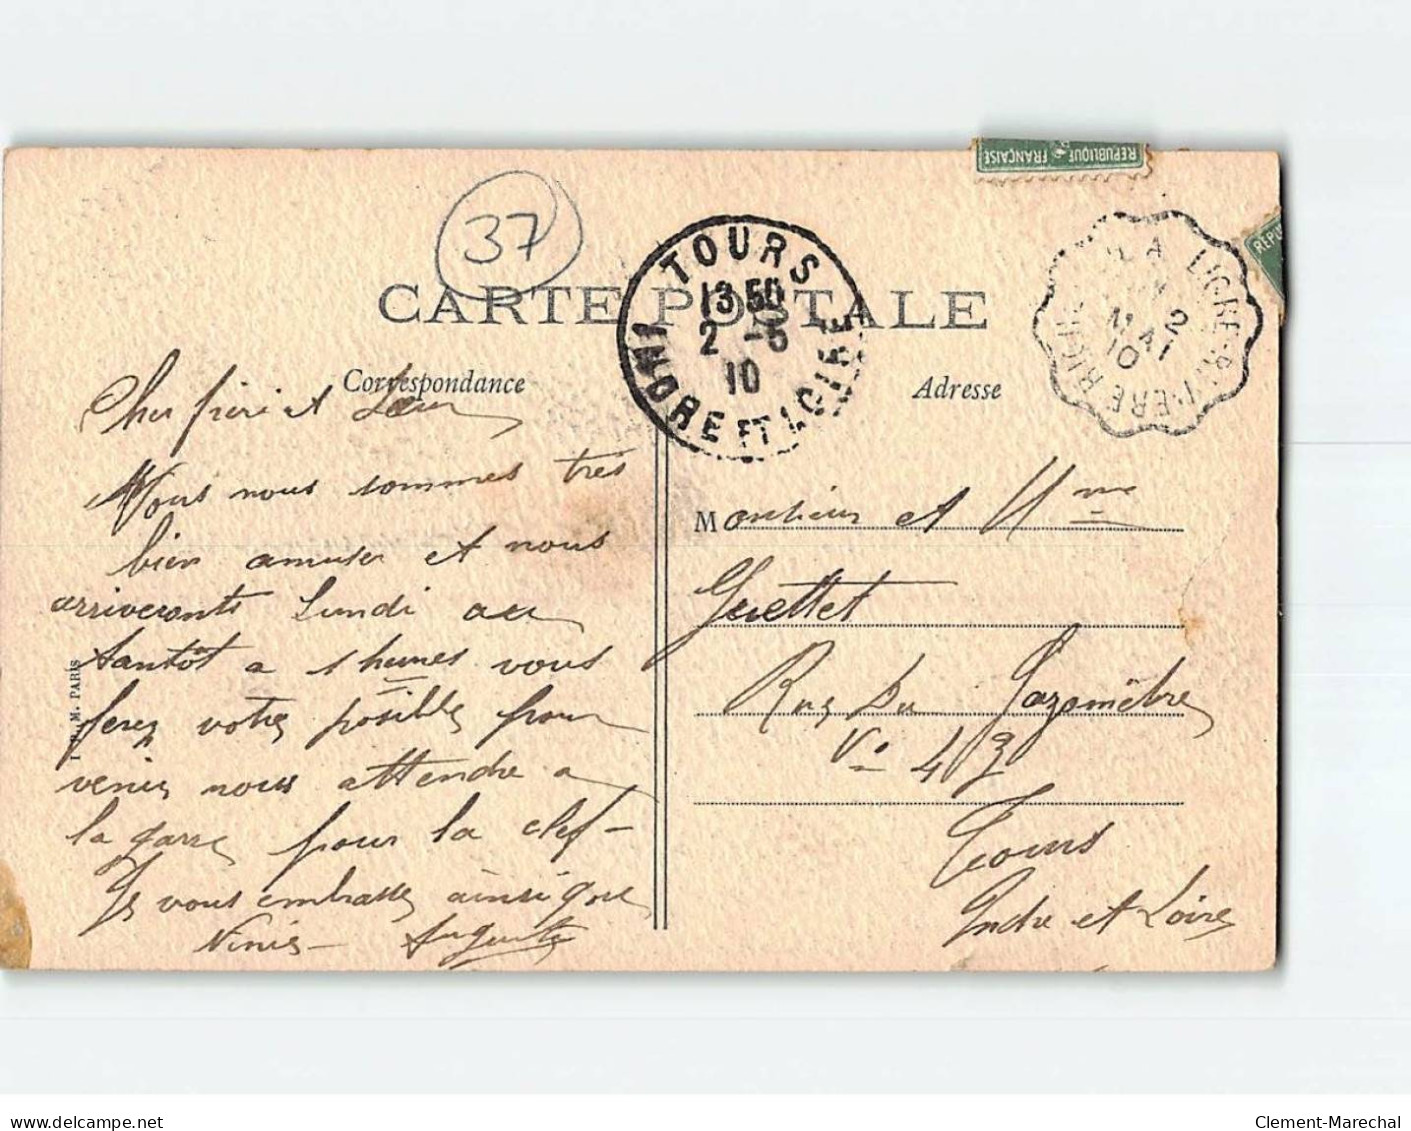 37
CARTE POSTALE
Correspondance
Adresse
TOURS
13 50
2 -5
10
INDRE ET LOIRE
LIGRE-RIVIERE
2
MAI
10
REPUBLIQUE FRANÇAISE
REPU
Cher frère et Sœur
Nous nous sommes très
bien amuser et nous
arriveronts Lundi au
tantôt a 1 heures vous
ferez votre posible pour
venir nous attendre a
la garre pour la clef-
Je vous embrasse ainsi que
Ninie - Auguste
PARIS
Monsieur et Mme
Guettet
Rue du Gazomètre
No 43
Tours
Indre et Loire
Clement-Marechal